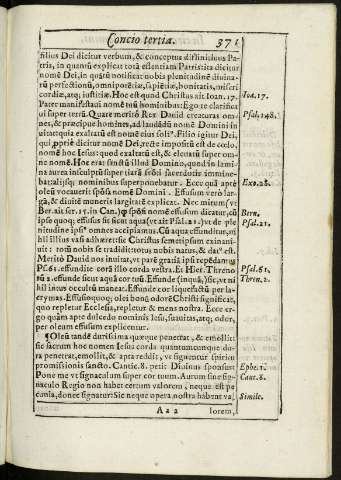 Concio tertia. 371
filius Dei dicitur verbum, & conceptus distinctiuus Pa-
tris, in quantũ explicat totã essentiam Patris: ita dicitur
nomẽ Dei, in quãtũ notificat nobis plenitudinẽ diuina-
rũ perfectionũ, omnipotẽtiæ, sapiẽtiæ, bonitatis, miseri
cordiæ, atq; iustitiæ. Hoc est quod Christus ait Ioan. 17.
Pater manifestaui nomẽ tuũ hominibus: Ego te clarifica
ui super terrã. Quare meritò Rex Dauid creaturas om-
nes, & præcipuè homines, ad laudãdũ nomẽ Domini in
uitat: quia exaltatũ est nomẽ eius soli⁹. Filio igitur Dei,
qui propriè dicitur nomẽ Dei, rectè impositũ est de cœlo,
nomẽ hoc Iesus: quod exaltatũ est, & eleuatũ super om-
ne nomẽ. Hoc erat sanctũ illud Domino, quod in lamina
aurea insculptũ super tiarã
bat: alijsq; nominibus superponebatur. Ecce quã aptè
oleũ vocauerit effusum nomen Domini. Effusum verò lar-
gã, & diuitẽ muneris largitatẽ explicat. Nec mirum (vt
Ber. ait ser. 15. in Can.) q̃ spõsi nomẽ effusum dicatur, cũ
ipso quoq; effusus sit sicut aqua (vt ait Psal. 21.) vt de ple
nitudine ipsi⁹ omnes accipiamus. Cũ aqua effunditur, ni
hil illius vasi adhæret: sic Christus semetipsum exinani-
uit: totus nobis se tradidit: totus nobis natus, & dat⁹ est.
Meritò Dauid nos inuitat, vt parẽ gratiã ipsi repẽdam⁹:
Psal. 61. effundite corã illo corda vestra. Et Hier. Threno
rũ 2. effunde sicut aqua cor tuũ. Effunde (inquã,) sic, vt ni
hil intus occultũ maneat. Effunde cor liquefactũ per la-
crymas. Effusoquoq; olei bonũ odorẽ Christi significat,
quo repletur Ecclesia, repletur & mens nostra. Ecce er-
go quàm aptè dulcedo nominis Iesu, suauitas, atq; odor,
per oleum effusum explicentur.
¶ Oleũ tandẽ durissima quæque penetrat, & emollit:
sic sacrum hoc nomen Iesus corda quantumcunque du-
ra penetrat, emollit, & apta reddit, vt signentur spiritu
promissionis sancto. Cantic. 8. petit Diuinus sponsus:
Pone me vt signaculum super cor tuum. Aurum sine sig-
naculo Regio non habet certum valorem, neque est pe
cunia, donec signatur: Sic neque opera nostra habent va
A a a lorem,
Ioa. 17.
Psal. 148.
Exo. 28.
Bern.
Psal. 21.
Psal. 61.
Thren. 2.
Ephe. 1.
Cant. 8.
Simile.